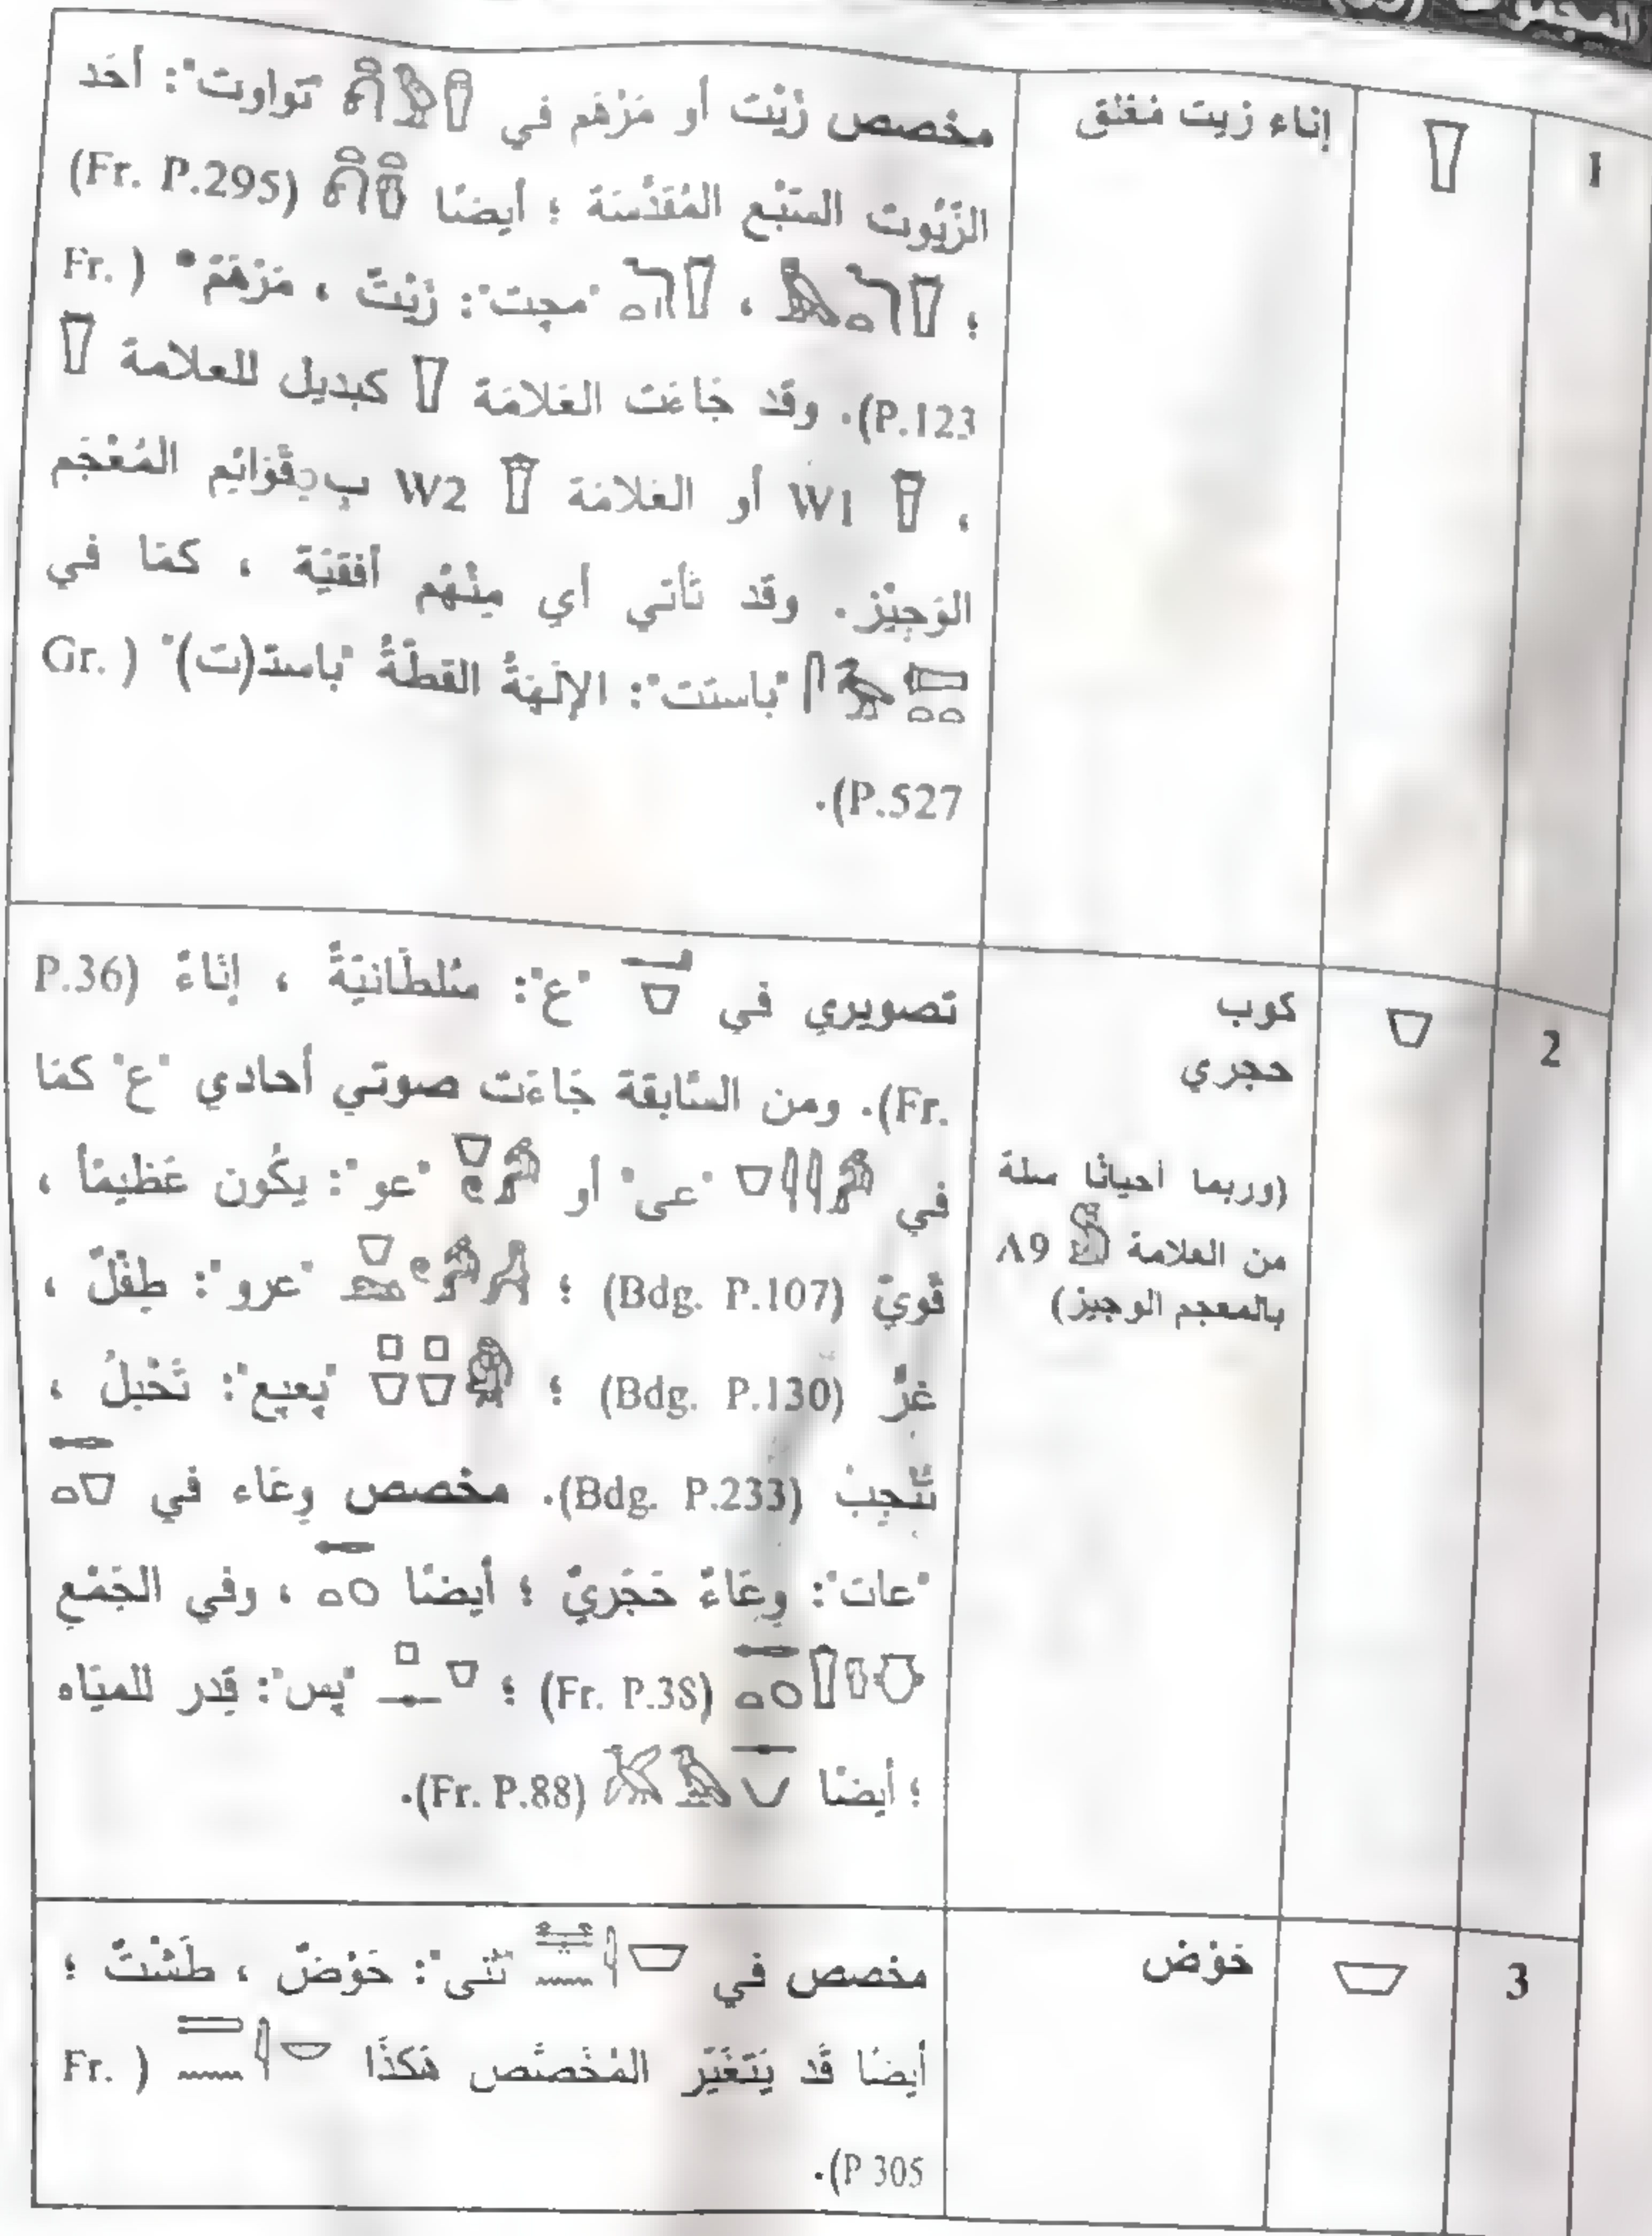 1
إناء زيت مُغلق
مخصص زَيْت أو مَرْهَم في "تواوت": أحَد
الزُّيُوت السَّبْع المُقَدَّسَة ؛ أيضًا (Fr. P.295)
؛ ، "مجت": زَيْتٌ ، مَرْهَمٌ" ( Fr.
P.123). وقد جَاءَت العَلامَة كبديل للعلامة
، W1 أو العَلامَة W2 ب المُعْجَم
الوَجِيْز. وقَد تَأتي أي مِنْهُم أفقيَة ، كمَا في
"باستت": الإلَهَةُ القطَّةُ "باست(ت)" ( Gr.
P.527).
2
كوب
حجري
(وربما أحيانًا سلة
من العلامة A9
بالمعجم الوجيز)
تصويري في "ع": سُلطَانيَّةٌ ، إنَاءٌ (P.36
Fr.). ومن السَّابقة جَاءَت صوتي أحادي "ع" كمَا
في "عى" أو "عو": يكُون عَظيمًا ،
قَويّ (Bdg. P.107) ؛ "عرو": طِفْلٌ ،
غرٌّ (Bdg. P.130) ؛ "پعپع": تَحْبلُ ،
تُنْجِبُ (Bdg. P.233). مخصص وِعَاء في
"عات": وِعَاءٌ حَجَريٌ ؛ أيضًا ، وفي الجَمْع
(Fr. P.38) ؛ "پس": قِدر للميَاه
؛ أيضًا (Fr. P.88).
3
حَوْض
مخصص في "ثنى": حَوْضٌ ، طَشْتٌ ؛
أيضًا قَد يَتَغَيَّر المُخَصَّص هَكذَا ( Fr.
P 305).